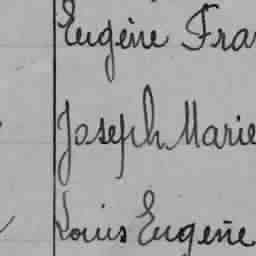 Eugène Fra
Joseph Marie
Louis Eugène